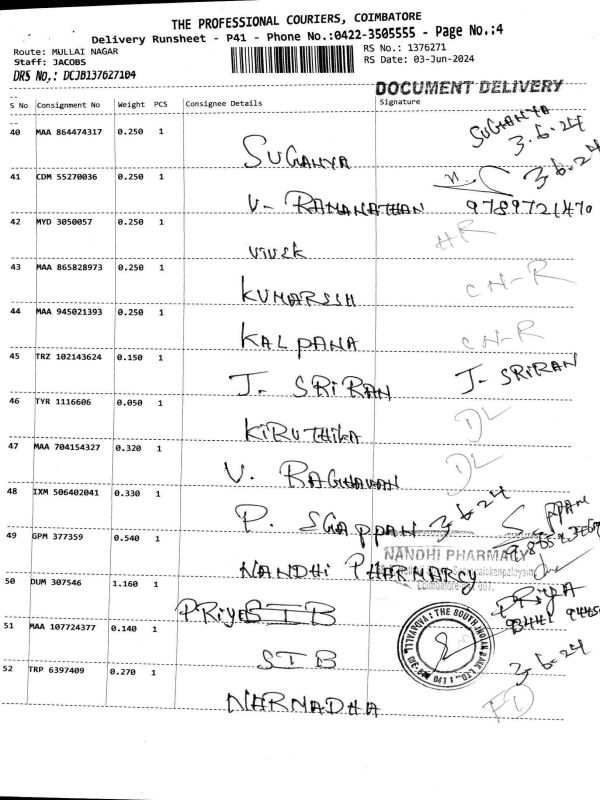 THE PROFESSIONAL COURIERS, COIMBATORE
Delivery Runsheet - P41 - Phone No.:0422-3505555 - Page No.:4
Route: MULLAI NAGAR
RS No.: 1376271
Staff: JACOBS
RS Date: 03-Jun-2024
DRS No,: DCJB137627104
DOCUMENT DELIVERY
S No Consignment No Weight PCS Consignee Details Signature
40 MAA 864474317 0.250 1 SUGANYA SUGANYA 3.6.24
41 CDM 55270036 0.250 1 V- RAMANATHAN 3.6.24
9789721470
42 MYD 3050057 0.250 1 VIVEK HR
43 MAA 865828973 0.250 1 KUMARESH CN-R
44 MAA 945021393 0.250 1 KALPANA CN-R
45 TRZ 102143624 0.150 1 J- SRIRAN J- SRIRAN
46 TYR 1116606 0.050 1 KIRUTHIKA DL
47 MAA 704154327 0.320 1 V. RAGHAVAN DL
48 IXM 506402041 0.330 1 P. SGAPPAN 3.6.24
49 GPM 377359 0.540 1 NANDHI PHARMARCY
NANDHI PHARMACY
50 DUM 307546 1.160 1 PRIYA SIB PRIYA
51 MAA 107724377 0.140 1 SIB
THE SOUTH INDIAN BANK LTD.
3.6.24
52 TRP 6397409 0.270 1 NARMADHA